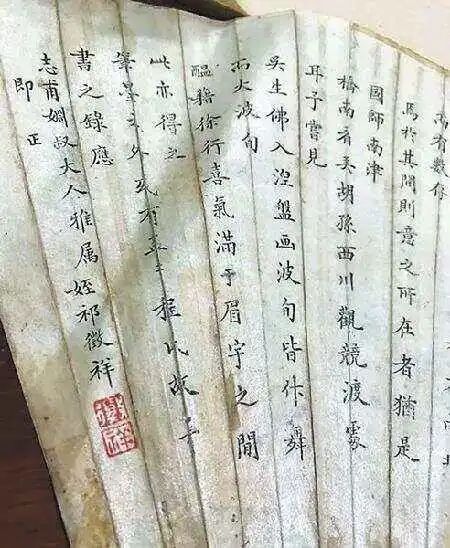 有数停
馬於其間則意之所在者猶是
國師南津
橋南看美胡孫西川觀競渡處
耳予嘗見
吳生佛入涅盤画波旬皆作舞
而大波旬
醖藉徐行喜氣滿于眉宇之間
此亦得之
筆墨之外 程氏故予
書之錄應
志甫姻叔大人雅属姪祁徵祥
即正
徵祥